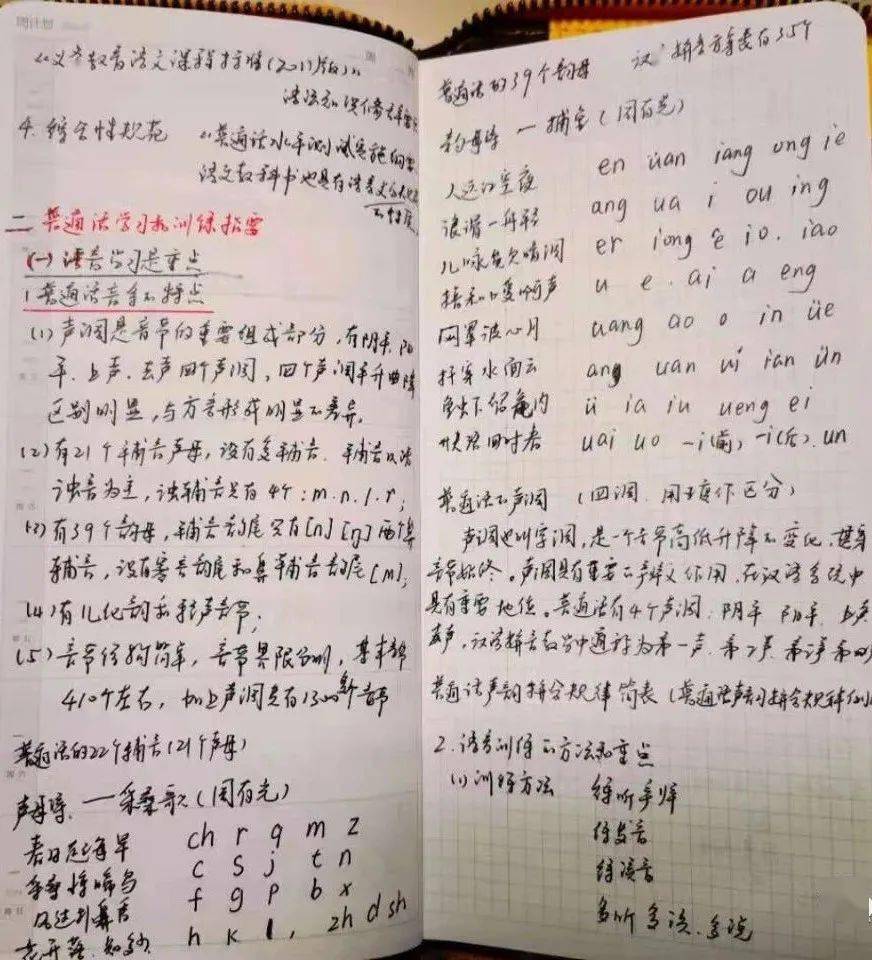 周计划
《义务教育语文课程标准(2011版)》
语法和
4. 综合性规范 《普通话水平测试实施纲要》
语文教科书也具有语言文字规范
的性质
二 普通话学习和训练指要
(一) 语音学习是重点
1 普通话语音的特点
(1) 声调是音节的重要组成部分,有阴平、阳
平、上声、去声四个声调,四个声调平升曲降
区别明显,与方言形成明显的差异。
(2) 有21个辅音声母,没有复辅音。辅音以清
浊音为主,浊辅音只有4个:m.n.l.r;
(3) 有39个韵母,辅音韵尾只有[n][ŋ]两个鼻
辅音,没有塞音韵尾和鼻辅音韵尾[m];
(4) 有儿化韵和轻声音节;
(5) 音节结构简单,音节界限分明,基本音节
410个左右,加上声调只有1300个音节
普通话的22个辅音(21个声母)
声母诗. — 采桑歌(周有光)
春日起每早 ch r q m z
采桑惊啼鸟 c s j t n
风过扑鼻香 f g p b x
花开落.知多少 h k l, zh d sh
普通话的39个韵母 汉 拼音方案表有35个
韵母诗 — 捕鱼(周有光)
人远江空夜 en üan iang ong ie
浪滑一舟轻 ang ua i ou ing
儿咏欸欠唷调 er iong ê io. iao
橹和嗳啊声 u e. ai a eng
网罩波心月 uang ao o in üe
竿穿水面云 ang uan ui ian ün
鱼虾留瓮内 ü ia iu ueng ei
快活四时春 uai uo -i(前) -i(后). un
普通话的声调 (四调. 用五度作区分)
声调也叫字调,是一个音节高低升降的变化,贯穿
音节始终。声调具有重要的辨义作用,在汉语系统中
具有重要地位。普通话有4个声调:阴平 阳平. 上声
去声,汉语拼音教学中通称为第一声. 第二声. 第三声和第四
普通话声韵拼合规律简表(普通话声韵拼合规律
2. 语音训练的方法和重点
(1) 训练方法 练听字辨
练发音
练读音
多听 多读. 多说